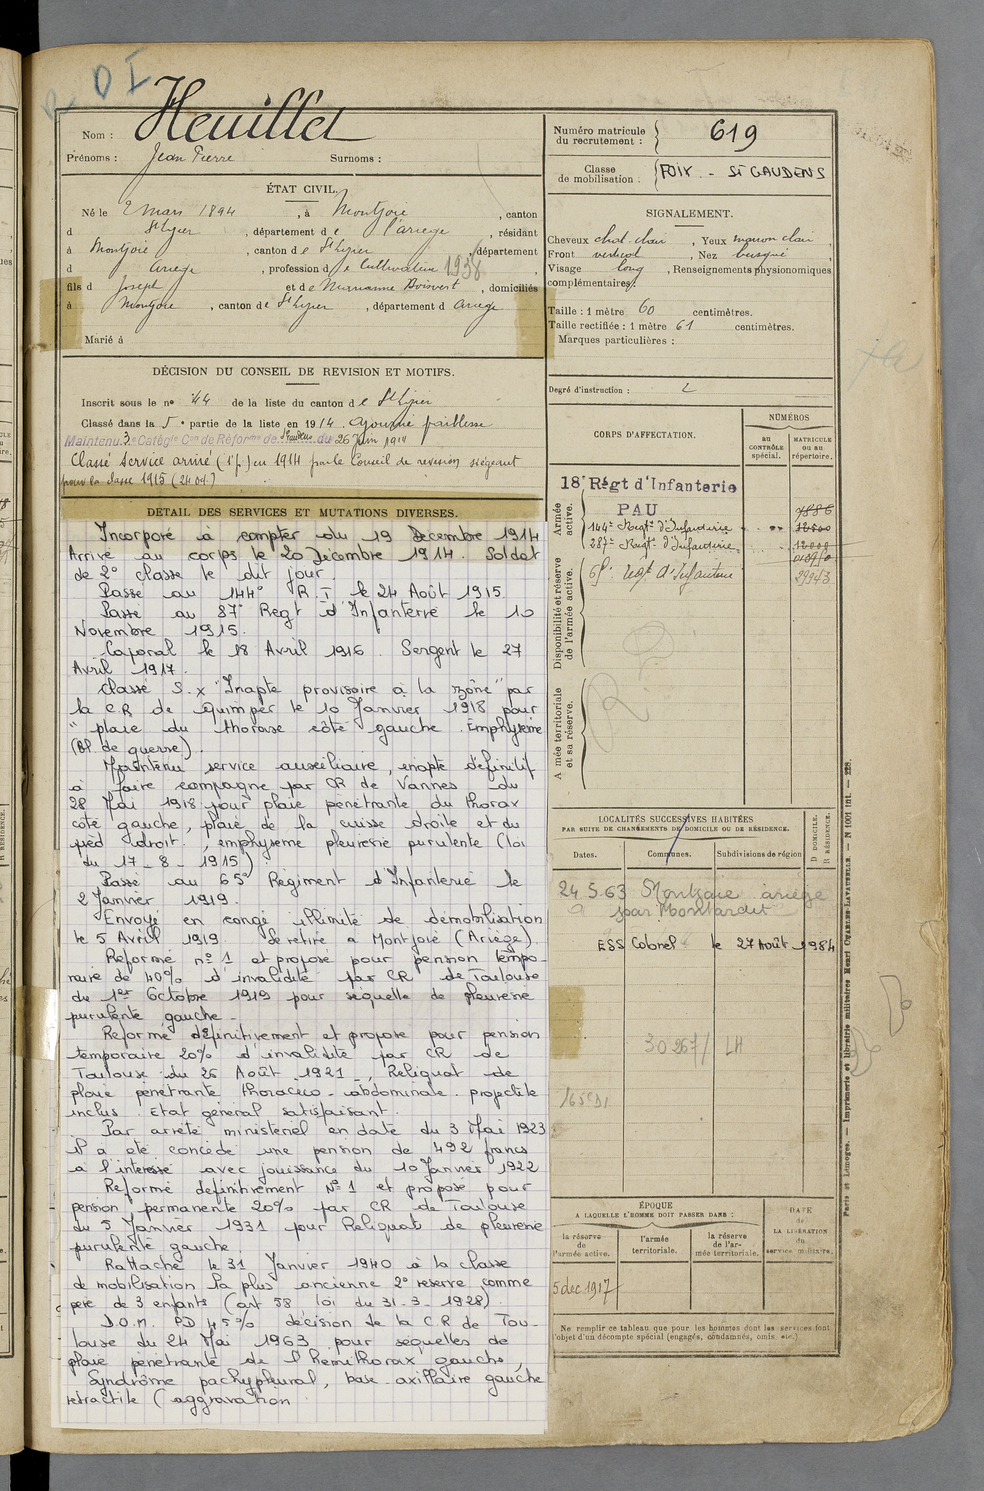 R. DI
Nom : Heuillet
Prénoms : Jean Pierre Surnoms :
ÉTAT CIVIL.
Né le 2 mars 1894, à Montjoie, canton
d St Lizier, département de l'ariege, résidant
à Montjoie, canton de St Lizier, département
d Ariege, profession de Cultivateur 1938
fils d Joseph et de Marianne Boisvert, domiciliés
à Montjoie, canton de St Lizier, département d Ariege
Marié à
DÉCISION DU CONSEIL DE REVISION ET MOTIFS.
Inscrit sous le no 44 de la liste du canton de St Lizier
Classé dans la 5e partie de la liste en 1914. ajourné faiblesse
Maintenu 3e Catégie Con de Réforme de St Gaudens du 26 Juin 1914
Classé Service armé (1e p) en 1914 par le Conseil de revision siégeant
pour la classe 1915 (24 04.)
DÉTAIL DES SERVICES ET MUTATIONS DIVERSES.
Incorporé à compter du 19 Décembre 1914
Arrivé au corps le 20 Décembre 1914. Soldat
de 2° classe le dit jour.
Passé au 144° R.I. le 24 Août 1915
Passé au 87° Regt d'Infanterie le 10
Novembre 1915.
Caporal le 18 Avril 1916. Sergent le 27
Avril 1917.
Classé S.x "Inapte provisoire à la zône" par
la C.R de Quimper le 10 Janvier 1918 pour
" plaie du thorax côté gauche. Emphysème
(Bl. de guerre).
Maintenu service auxiliaire, inapte définitif
à faire campagne par CR de Vannes du
28 Mai 1918 pour plaie pénétrante du thorax
côté gauche, plaie de la cuisse droite et du
pied droit, emphysème pleurésie purulente (loi
du 17-8-1915)
Passé au 65° Régiment d'Infanterie le
2 Janvier 1919.
Envoyé en congé illimité de démobilisation
le 5 Avril 1919. Se retire à Montjoie (Ariège).
Réformé n° 1 et proposé pour pension tempo-
raire de 40% d'invalidité par CR de Toulouse
du 1er Octobre 1919 pour séquelle de pleuresie
purulente gauche.
Réformé définitivement et proposé pour pension
temporaire 20% d'invalidité par CR de
Toulouse du 26 Août 1921, Reliquat de
plaie pénétrante thoraceco-abdominale. projectile
inclus. Etat général satisfaisant.
Par arrêté ministeriel en date du 3 Mai 1923
il a été concédé une pension de 492 francs
à l'interessé avec jouissance du 10 Janvier 1922
Réformé définitivement N° 1 et proposé pour
pension permanente 20% par CR de Toulouse
du 5 Janvier 1931 pour Reliquat de pleuresie
purulente gauche.
Rattaché le 31 Janvier 1940 à la classe
de mobilisation la plus ancienne 2° reserve comme
père de 3 enfants (art 58, loi du 31-3-1928).
D.O.M. PD 45% décision de la C.R de Tou-
louse du 24 Mai 1963 pour séquelles de
plaie pénétrante de l'hémithorax gauche,
Syndrôme pachypleural, base axillaire gauche
rétractile (aggravation
Numéro matricule
du recrutement : 619
Classe
de mobilisation : FOIX - ST GAUDENS
SIGNALEMENT.
Cheveux chat. clair, Yeux marron clair,
Front vertical, Nez busqué,
Visage long, Renseignements physionomiques
complémentaires:
Taille : 1 mètre 60 centimètres.
Taille rectifiée : 1 mètre 61 centimètres.
Marques particulières :
Degré d'instruction : 2
CORPS D'AFFECTATION.
NUMÉROS
AU CONTRÔLE spécial.
MATRICULE OU AU répertoire.
Armée active.
18e Régt d'Infanterie
PAU 7886
144e Regt d'Infanterie 12500
287e Regt d'Infanterie 12008
65e Regt d'Infanterie 29943
Disponibilité et réserve de l'armée active.
Armée territoriale et sa réserve.
LOCALITÉS SUCCESSIVES HABITÉES
PAR SUITE DE CHANGEMENTS DE DOMICILE OU DE RÉSIDENCE.
Dates. Communes. Subdivisions de région D DOMICILE. R RÉSIDENCE.
24.5.63 Montjoie ariège
par Montardit
ESS Cabrel le 27 Août 1984
30267/ LH
ÉPOQUE
A LAQUELLE L'HOMME DOIT PASSER DANS :
la réserve de l'armée active. l'armée territoriale. la réserve de l'armée territoriale.
DATE DE LA LIBÉRATION du service militaire.
5 dec 1917
Ne remplir ce tableau que pour les hommes dont les services font
l'objet d'un décompte spécial (engagés, condamnés, omis, etc.)
Paris et Limoges. — Imprimerie et librairie militaires Henri CHARLES-LAVAUZELLE. — N 1001 int. — 228.